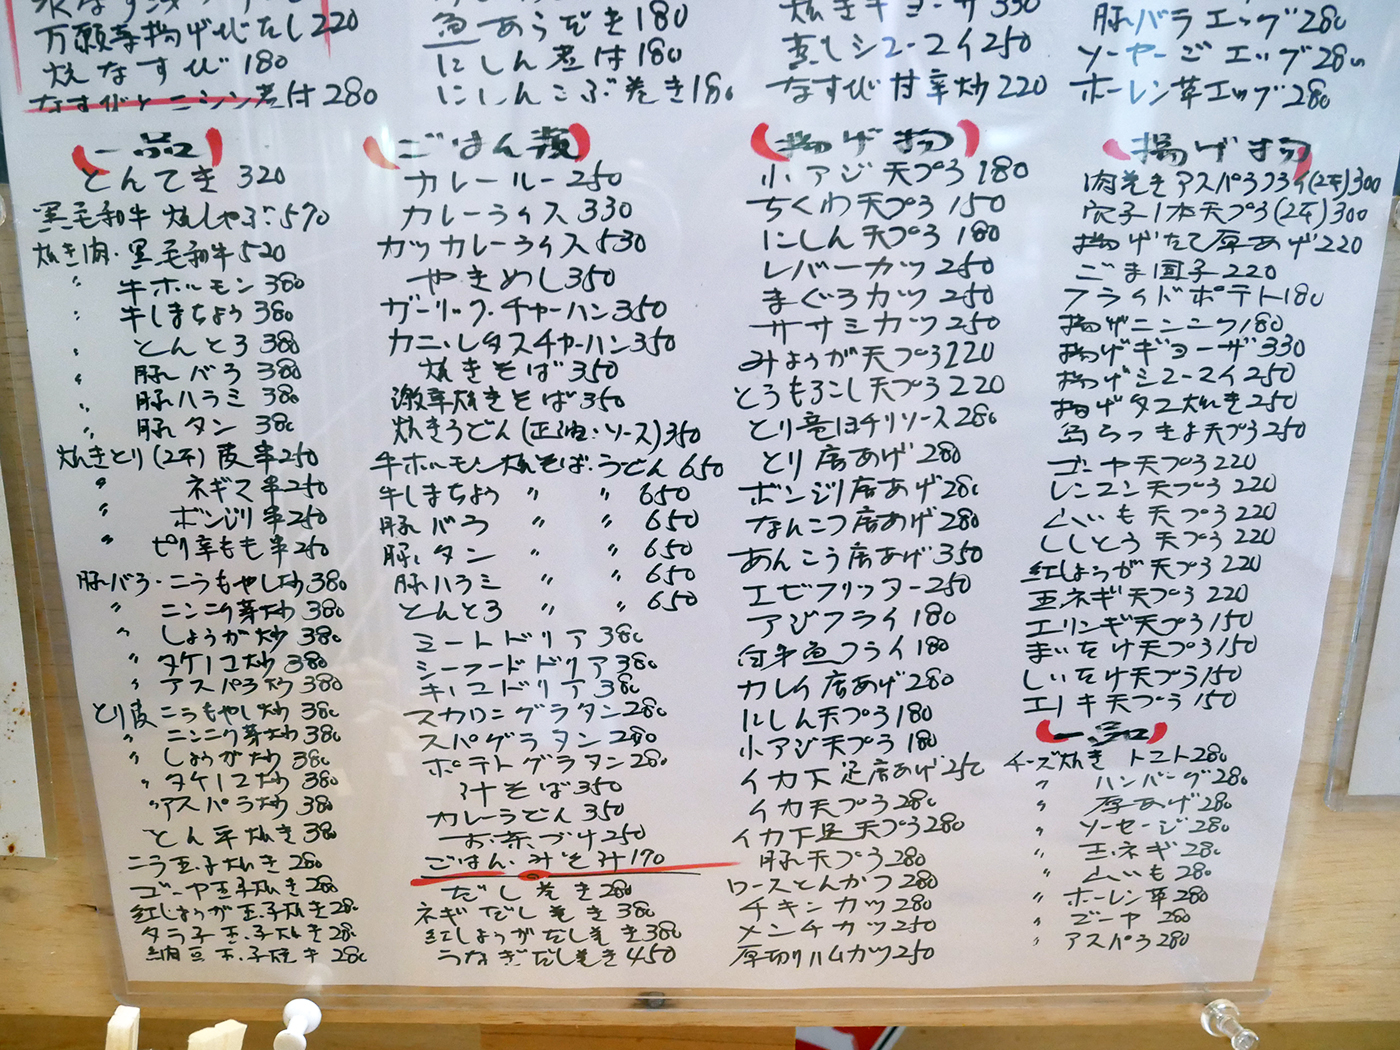 万願寺揚げびたし220
焼なすび180
なすびとニシン煮付280
一品
とんてき 320
黒毛和牛 焼しゃぶ570
焼き肉・黒毛和牛520
〃 牛ホルモン 380
〃 牛しまちょう 380
〃 とんとろ 380
〃 豚バラ 380
〃 豚ハラミ 380
〃 豚タン 380
焼きとり(2本)皮串250
〃 ネギマ串250
〃 ボンジリ串250
〃 ピリ辛もも串250
豚バラ・ニラもやし炒380
〃 ニンニク芽炒 380
〃 しょうが炒 380
〃 タケノコ炒 380
〃 アスパラ炒 380
とり皮 ニラもやし炒 380
〃 ニンニク芽炒 380
〃 しょうが炒 380
〃 タケノコ炒 380
〃 アスパラ炒 380
とん平焼き 380
ニラ玉子焼き 280
ゴーヤ玉子焼き 280
紅しょうが玉子焼き280
タラ子玉子焼き 280
納豆玉子焼き 280
魚あらだき180
にしん煮付180
にしんこぶ巻き180
ごはん類
カレールー250
カレーライス 330
カツカレーライス530
やきめし350
ガーリック・チャーハン350
カニ・レタスチャーハン350
焼きそば350
激辛焼きそば350
焼きうどん(正油・ソース)350
牛ホルモン焼そば・うどん 650
牛しまちょう 〃 〃 650
豚バラ 〃 〃 650
豚タン 〃 〃 650
豚ハラミ 〃 〃 650
とんとろ 〃 〃 650
ミートドリア380
シーフードドリア380
キノコドリア380
マカロニグラタン280
スパグラタン280
ポテトグラタン280
汁そば350
カレーうどん350
お茶づけ250
ごはん・みそ汁170
だし巻き280
ネギだし巻き380
紅しょうがだし巻き380
うなぎだし巻き450
焼きギョーザ330
蒸しシューマイ250
なすび甘辛炒220
揚げ物
小アジ天プラ180
ちくわ天プラ150
にしん天プラ180
レバーカツ250
まぐろカツ250
ササミカツ250
みょうが天プラ220
とうもろこし天プラ220
とり竜田チリソース280
とり唐あげ280
ボンジリ唐あげ280
なんこつ唐あげ280
あんこう唐あげ350
エビフリッター250
アジフライ180
白身魚フライ180
カレイ唐あげ280
にしん天プラ180
小アジ天プラ180
イカ下足唐あげ250
イカ天プラ280
イカ下足天プラ280
豚天プラ280
ロースとんかつ280
チキンカツ280
メンチカツ250
厚切りハムカツ250
豚バラエッグ280
ソーセージエッグ280
ホーレン草エッグ280
揚げ物
肉巻きアスパラフライ(2本)300
穴子1本天プラ(2本)300
揚げたて厚あげ220
ごま団子220
フライドポテト180
揚げニンニク180
揚げギョーザ330
揚げシューマイ250
揚げタコ焼き250
島らっきょ天プラ250
ゴーヤ天プラ220
レンコン天プラ220
山いも天プラ220
ししとう天プラ220
紅しょうが天プラ220
玉ネギ天プラ220
エリンギ天プラ150
まいたけ天プラ150
しいたけ天プラ150
エノキ天プラ150
一品
チーズ焼き トマト280
〃 ハンバーグ280
〃 厚あげ280
〃 ソーセージ280
〃 玉ネギ280
〃 山いも280
〃 ホーレン草280
〃 ゴーヤ280
〃 アスパラ280